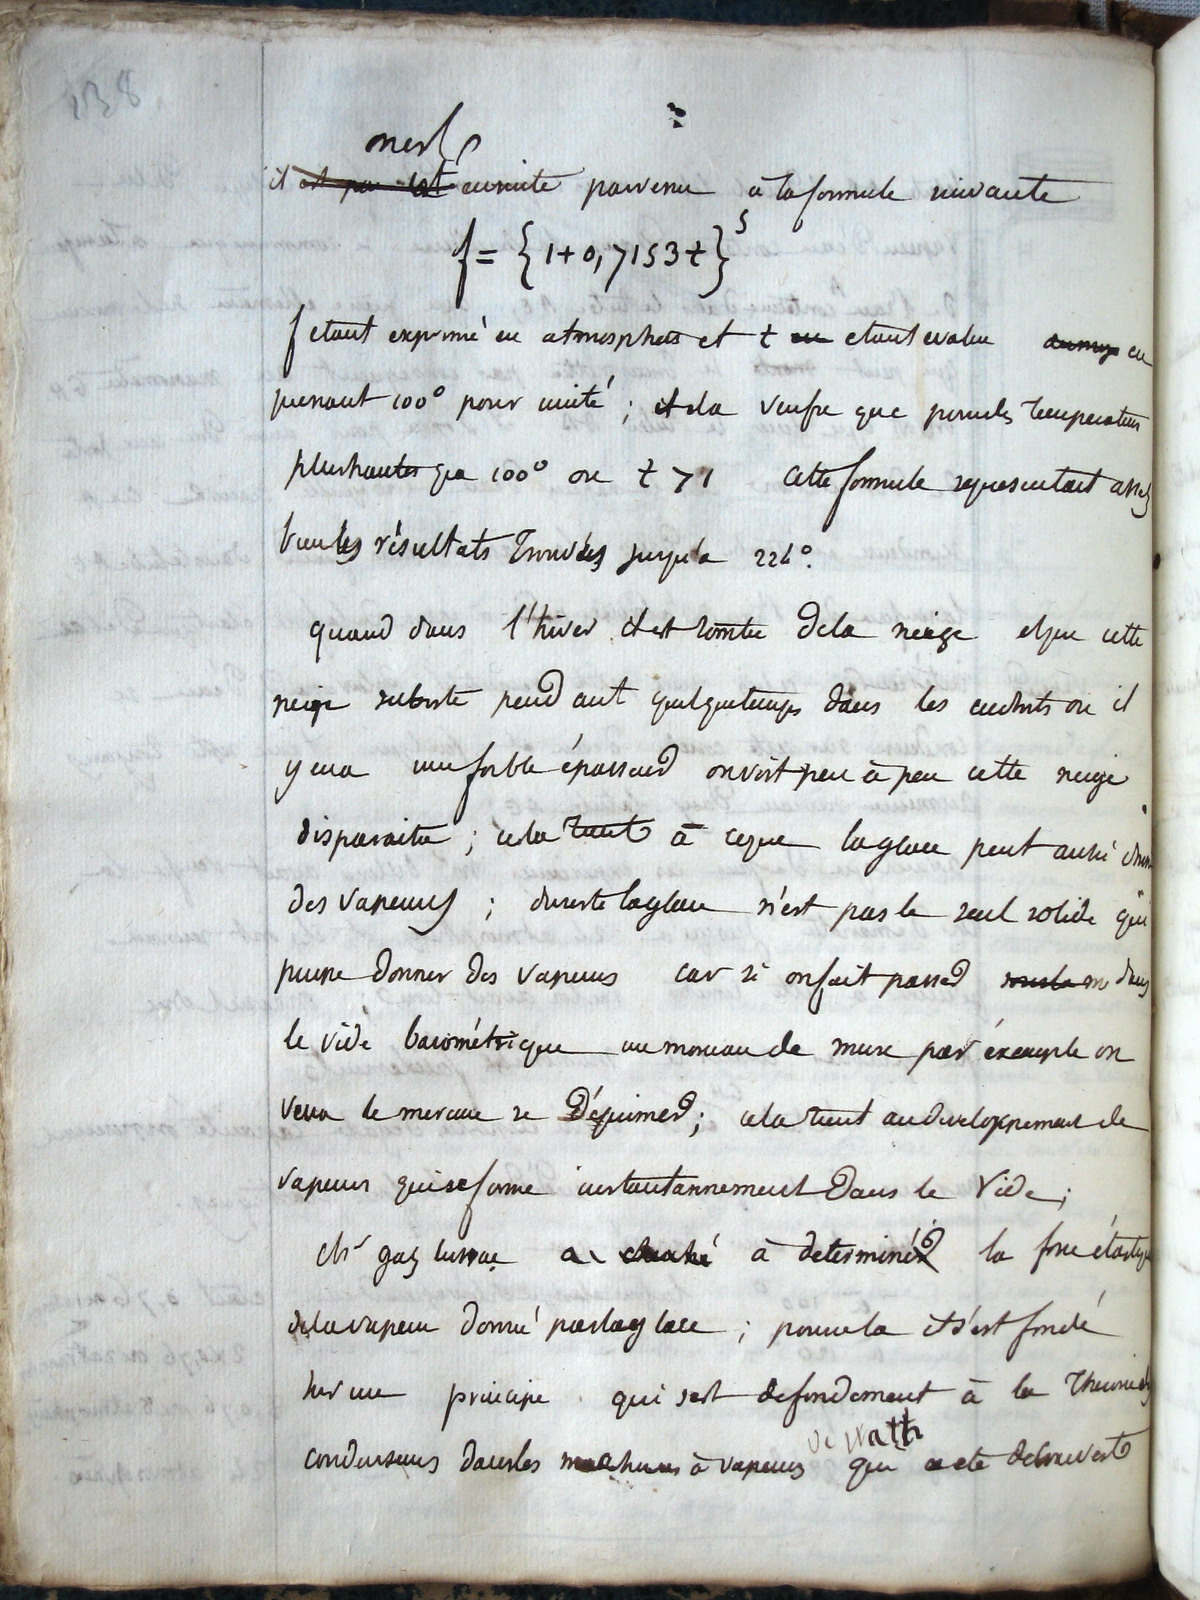 138
on est
il est par est ensuite parvenu à la formule suivante
f = {1+0,7153 t}⁵
f etant exprimé en atmospheres et t en etant evalue en
prenant 100° pour unité ; il a verifie que pour les temperatures
plus hautes que 100° ou t > 1 cette formule representait assez
bien les résultats trouvées jusqu'a 224°.
quand dans l'hiver il est tombée de la neige et que cette
neige subsiste pendant quelque temps dans les endroits ou il
y en a une foible épaisseur on voit peu à peu cette neige
disparaitre ; cela tient à ceque la glace peut aussi donner
des vapeurs ; du reste la glace n'est pas le seul solide qui
puisse donner des vapeurs car si on fait passer dans
le vide barométrique un morceau de musc par éxemple on
verra le mercure se déprimer ; cela tient au developpement de
vapeurs qui se forme instantannement dans le vide ;
Mr gay lussac a cherché à determiner la force élastique
de la vapeur donné par la glace ; pour cela il s'est fondé
sur un principe qui sert de fondement à la Theorie des
de Wath
condenseurs dans les machines à vapeurs qui a eté découvert